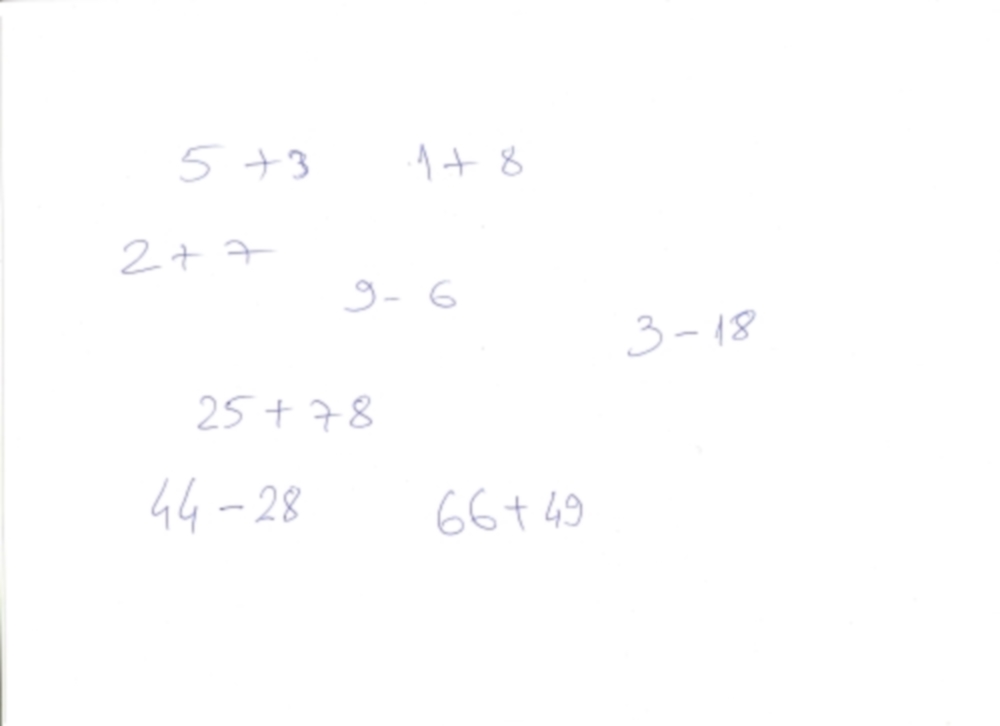 5 + 3 1 + 8
2 + 7
9 - 6
3 - 18
25 + 78
44 - 28 66 + 49